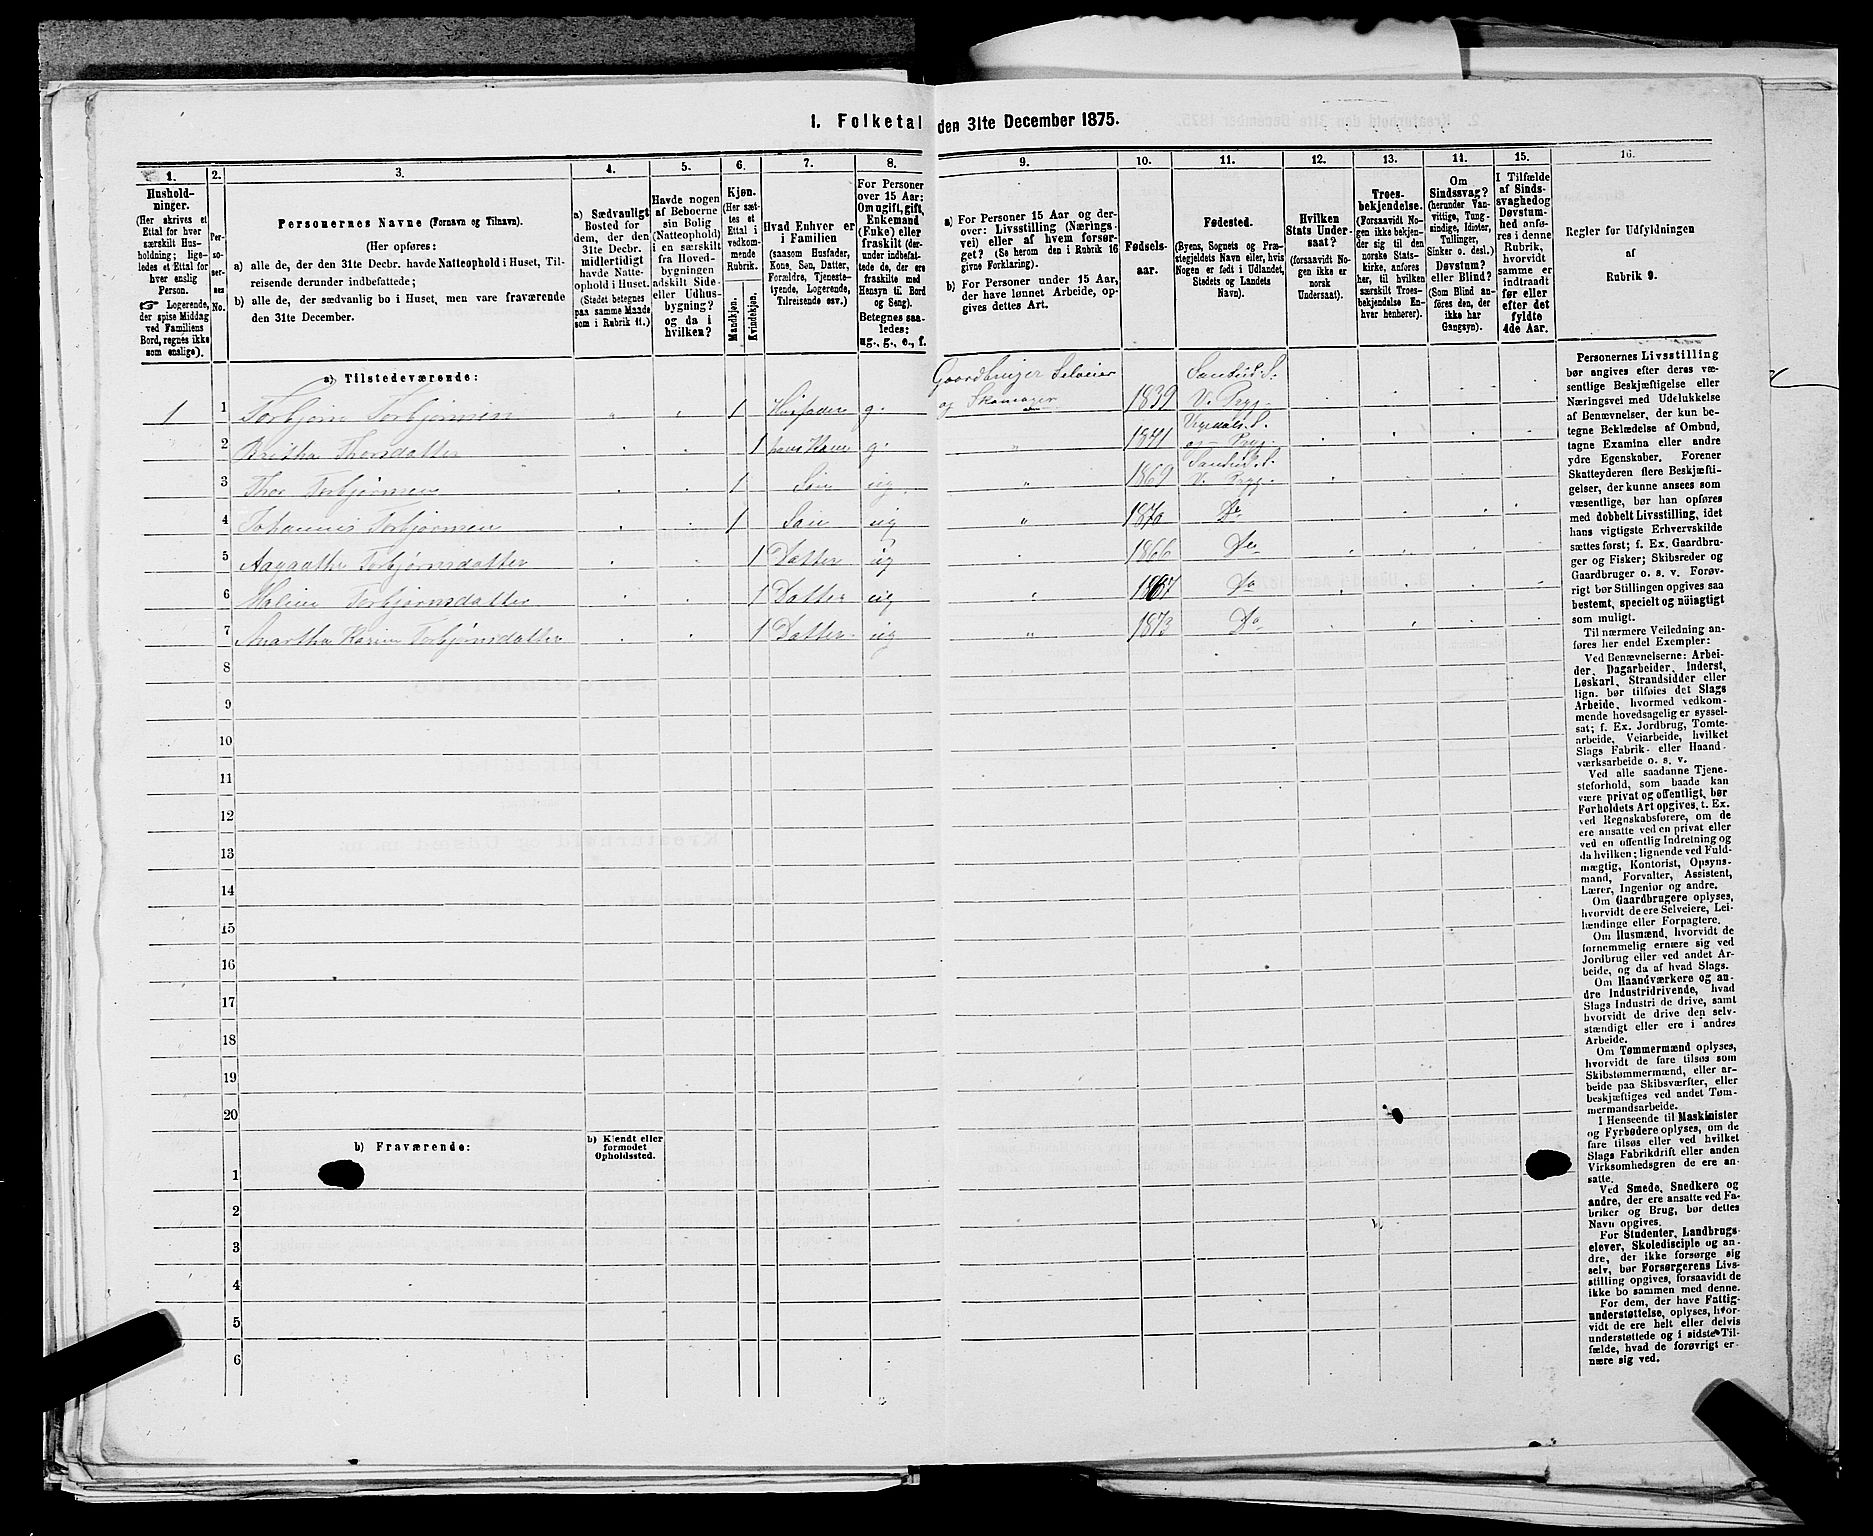 1. Folketal den 31te December 1875.
1.
Hushold-
ninger.
(Her skrives et
Ettal for hver
særskilt Hus-
holdning; lige-
ledes et Ettal for
hver enslig
Person.
☞ Logerende,
der spise Middag
ved Familiens
Bord, regnes ikke
som enslige).
2.
Per-
so-
ner-
nes
No.
3.
Personernes Navne (Fornavn og Tilnavn).
(Her opføres:
a) alle de, der den 31te Decbr. havde Natteophold i Huset, Til-
reisende derunder indbefattede;
b) alle de, der sædvanlig bo i Huset, men vare fraværende
den 31te December.
4.
a) Sædvanligt
Bosted for
dem, der den
31te Decbr.
midlertidigt
havde Natte-
ophold i Huset.
(Stedet betegnes
paa samme Maade
som i Rubrik 11.)
5.
Havde nogen
af Beboerne
sin Bolig
(Natteophold)
i en særskilt
fra Hoved-
bygningen
adskilt Side-
eller Udhus-
bygning?
og da i
hvilken?
6.
Kjøn.
(Her sæt-
tes et
Ettal i
vedkom-
mende
Rubrik.
Mandkjøn.
Kvindekjøn.
7.
Hvad Enhver er
i Familien
(saasom Husfader,
Kone, Søn, Datter,
Forældre, Tjeneste-
tyende, Logerende,
Tilreisende osv.)
8.
For Personer
over 15 Aar:
Om ugift, gift,
Enkemand
(Enke) eller
fraskilt (der-
under indbefat-
tede de, der ere
fraskilte med
Hensyn til Bord
og Seng).
Betegnes saa-
ledes:
ug., g., e., f.
9.
a) For Personer 15 Aar og der-
over: Livsstilling (Nærings-
vei) eller af hvem forsør-
get? (Se herom den i Rubrik 16
givne Forklaring).
b) For Personer under 15 Aar,
der have lønnet Arbeide, op-
gives dettes Art.
10.
Fødsels-
aar.
11.
Fødested.
(Byens, Sognets og Præ-
stegjeldets Navn eller, hvis
Nogen er født i Udlandet,
Stedets og Landets
Navn).
12.
Hvilken
Stats Under-
saat?
(forsaavidt No-
gen ikke er
norsk
Undersaat).
13.
Troes-
bekjendelse.
(Forsaavidt No-
gen ikke bekjen-
der sig til den
norske Stats-
kirke, anføres
her, til hvilken
særskilt Troes-
bekjendelse En-
hver henhører).
14.
Om
Sindssvag?
(herunder Van-
vittige, Tung-
sindige, Idioter,
Tullinger,
Sinker o. desl.)
Døvstum?
eller Blind?
(Som Blind an-
føres den, der
ikke har
Gangsyn).
15.
I Tilfælde
af Sinds-
svaghed og
Døvstum-
hed anfø-
res i denne
Rubrik,
hvorvidt
samme er
indtraadt
før eller
efter det
fyldte
4de Aar.
16.
Regler for Udfyldningen
af
Rubrik 9.
a) Tilstedeværende:
Gaardbruger Selveier Sandeid S.
1 1 Torbjørn Torbjørnsen " 1 Husfader g. og Skomager 1839 V. Prgj.
2 Britha Thorsdatter 1 hans Kone g. " 1841 og Prgj.
3 Thor Torbjørnsen 1 Søn ug " 1869 Sandeid S. V. Prgj.
4 Johannes Torbjørnsen 1 Søn ug " 1870 Do
5 Aagaathe Torbjørnsdatter 1 Datter ug 1866 Do
6 Malene Torbjørnsdatter 1 Datter ug 1867 Do
7 Martha Karine Torbjørnsdatter 1 Datter ug " 1873 Do
8
9
10
11
12
13
14
15
16
17
18
19
20
b) Fraværende:
b) Kjendt eller
formodet
Opholdssted.
1
2
3
4
5
6
Personernes Livsstilling
bør angives efter deres væ-
sentlige Beskjæftigelse eller
Næringsvei med Udelukkelse
af Benævnelser, der kun be-
tegne Beklædelse af Ombud,
tagne Examina eller andre
ydre Egenskaber. Forener
Skatteyderen flere Beskjæfti-
gelser, der kunne ansees som
væsentlige, bør han opføres
med dobbelt Livsstilling, idet
hans vigtigste Erhvervskilde
sættes først; f. Ex. Gaardbru-
ger og Fisker; Skibsreder og
Gaardbruger o. s. v. Forøv-
rigt bør Stillingen opgives saa
bestemt, specielt og nøiagtigt
som muligt.
Til nærmere Veiledning an-
føres her endel Exempler:
Ved Benævnelserne: Arbei-
der, Dagarbeider, Inderst,
Løskarl, Strandsidder eller
lign. bør tilføies det Slags
Arbeide, hvormed vedkom-
mende hovedsagelig er syssel-
sat; f. Ex. Jordbrug, Tomte-
arbeide, Veiarbeide, hvilket
Slags Fabrik- eller Haand-
værksarbeide o. s. v.
Ved alle saadanne Tjene-
steforhold, som baade kan
være privat og offentligt, bør
Forholdets Art opgives, t. Ex.
ved Regnskabsførere, om de
ere ansatte ved en privat eller
ved en offentlig Indretning og
da hvilken; lignende ved Fuld-
mægtig, Kontorist, Opsyns-
mand, Forvalter, Assistent,
Lærer, Ingeniør og andre.
Om Gaardbrugere oplyses,
hvorvidt de ere Selveiere, Lei-
lændinge eller Forpagtere.
Om Husmænd, hvorvidt de
fornemmelig ernære sig ved
Jordbrug eller ved andet Ar-
beide, og da af hvad Slags.
Om Haandværkere og an-
dre Industridrivende, hvad
Slags Industri de drive, samt
hvorvidt de drive den selv-
stændigt eller ere i andres
Arbeide.
Om Tømmermænd oplyses,
hvorvidt de fare tilsøs som
Skibstømmermænd, eller ar-
beide paa Skibsværfter, eller
beskjæftiges ved andet Tøm-
mermandsarbeide.
I Henseende til Maskinister
og Fyrbødere oplyses, om de
fare tilsøs eller ved hvilket
Slags Fabrikdrift eller anden
Virksomhedsgren de ere an-
satte.
Ved Smede, Snedkere og
andre, der ere ansatte ved Fa-
briker og Brug, bør dettes
Navn opgives.
For Studenter, Landbrugs-
elever, Skoledisciple og an-
dre, der ikke forsørge sig
selv, bør Forsørgerens Livs-
stilling opgives, forsaavidt de
ikke bo sammen med denne.
For dem, der have Fattig-
understøttelse, oplyses, hvor-
vidt de ere helt eller delvis
understøttede og i sidste Til-
fælde, hvad de forøvrigt er-
nære sig ved.